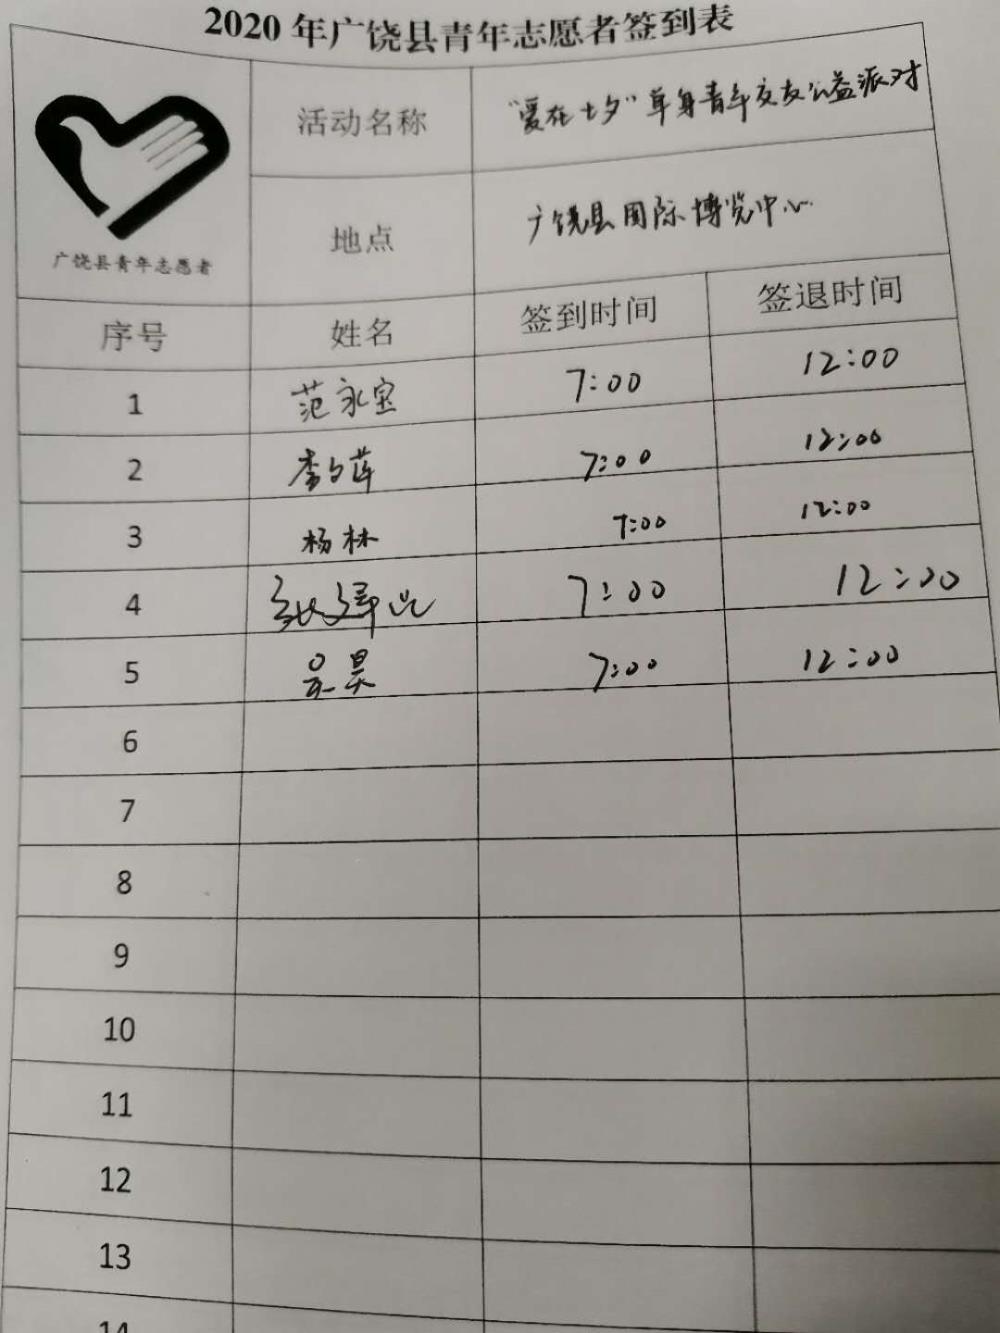 2020年广饶县青年志愿者签到表
活动名称 "爱在七夕"单身青年交友公益派对
广饶县青年志愿者
地点 广饶县国际博览中心
序号 姓名 签到时间 签退时间
1 范永宝 7:00 12:00
2 李文莲 7:00 12:00
3 杨林 7:00 12:00
4 7:00 12:00
5 吴昊 7:00 12:00
6
7
8
9
10
11
12
13
14